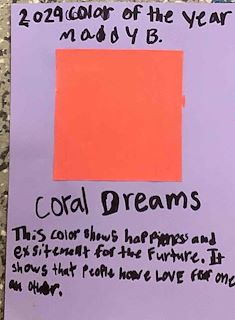 2029 color of the year
maddy B.
Coral Dreams
This color shows happieness and
exsitement for the Furture. It
shows that people have LOVE for one
an other.